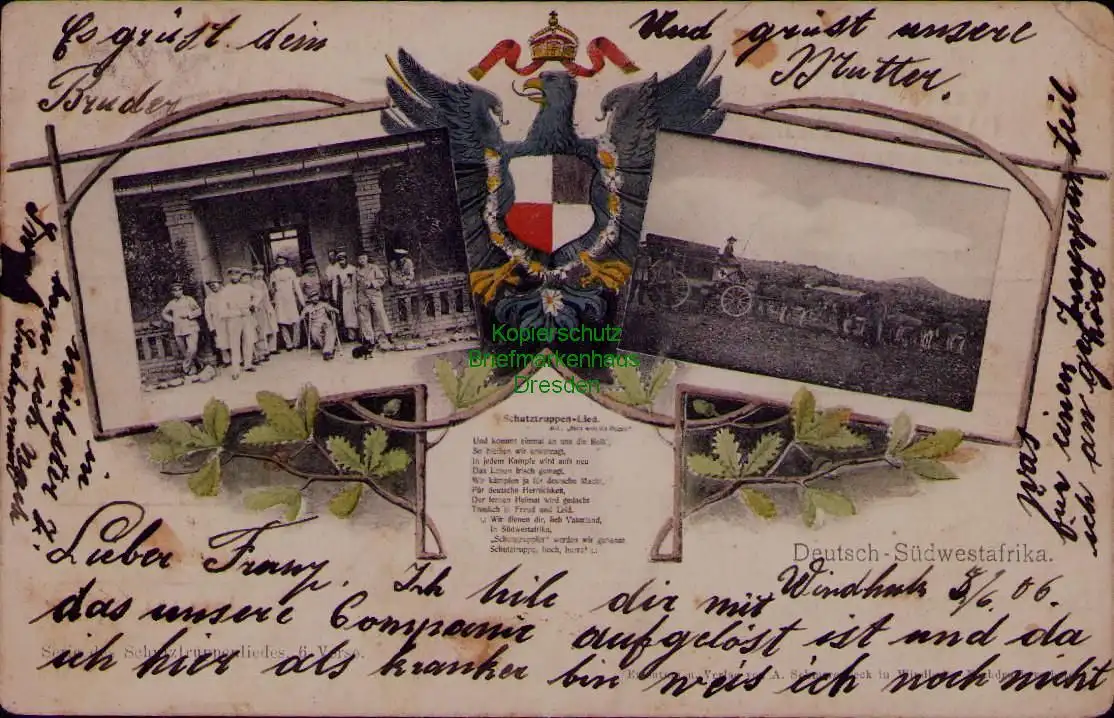 Es grüst dein
Bruder
Und grüst unsere
Mutter.
Kopierschutz
Briefmarkenhaus
Dresden
Schutztruppen-Lied.
Und kommt einmal an uns die Reih',
So bleiben wir unverzagt,
In jedem Kampfe wird aufs neu
Das Leben frisch gewagt.
Wir kämpfen ja für deutsche Macht,
Für deutsche Herrlichkeit,
Der fernen Heimat wird gedacht
Treulich in Freud und Leid.
Wir dienen dir, lieb Vaterland,
In Südwestafrika,
„Schutztruppler" werden wir genannt
Schutztruppe, hoch, hurra!
Deutsch-Südwestafrika.
Windhuk 5/6. 06.
Lieber Franz. Ich teile dir mit
das unsere Companie aufgelöst ist und da
Serie des Schutztruppenliedes, 6. Verse.
ich hier als kranker bin weis ich noch nicht
was
für einen Truppenteil
ich angehört